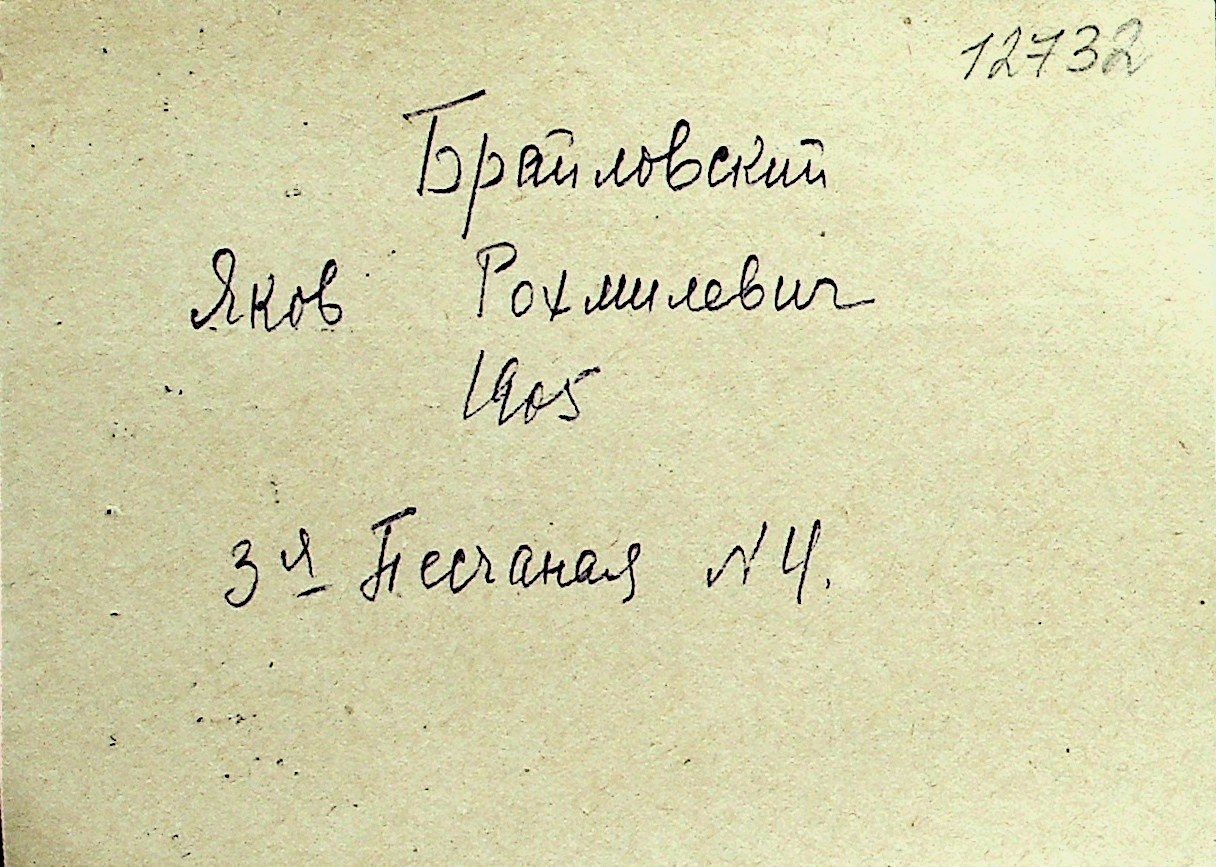 12732
Брайловский
Яков Рохмилевич
1905
3я Песчаная N 4.